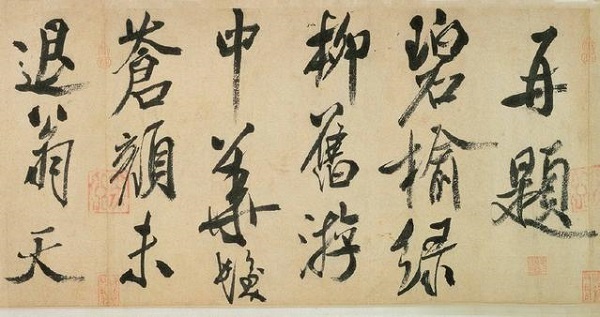 再題
碧榆綠
柳舊游
中華髮
蒼顏未
退翁天